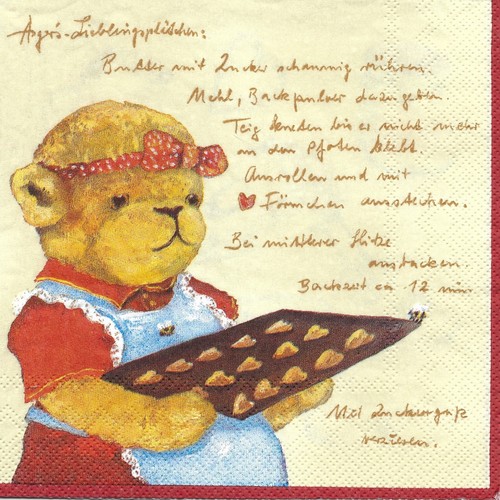 Asger's-Lieblingsplätzchen:
Butter mit Zucker schaumig rühren.
Mehl, Backpulver dazugeben.
Teig kneten bis er nicht mehr
an den Pfoten klebt.
Ausrollen und mit
Förmchen ausstechen.
Bei mittlerer Hitze
ausbacken
Backzeit ca 12 min.
Mit Zuckerguß
verzieren.